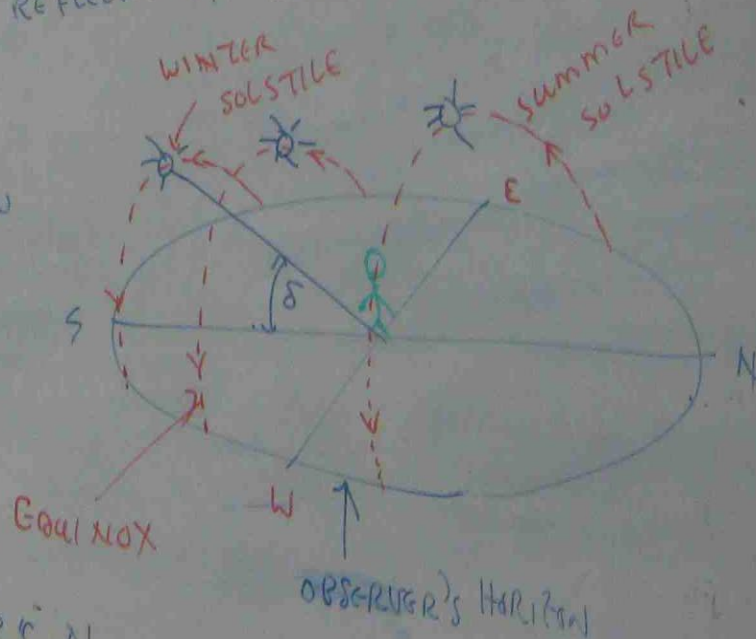 WINTER
SOLSTILE
SUMMER
SOLSTILE
E
δ
S
N
W
EQUINOX
OBSERVER'S HORIZON